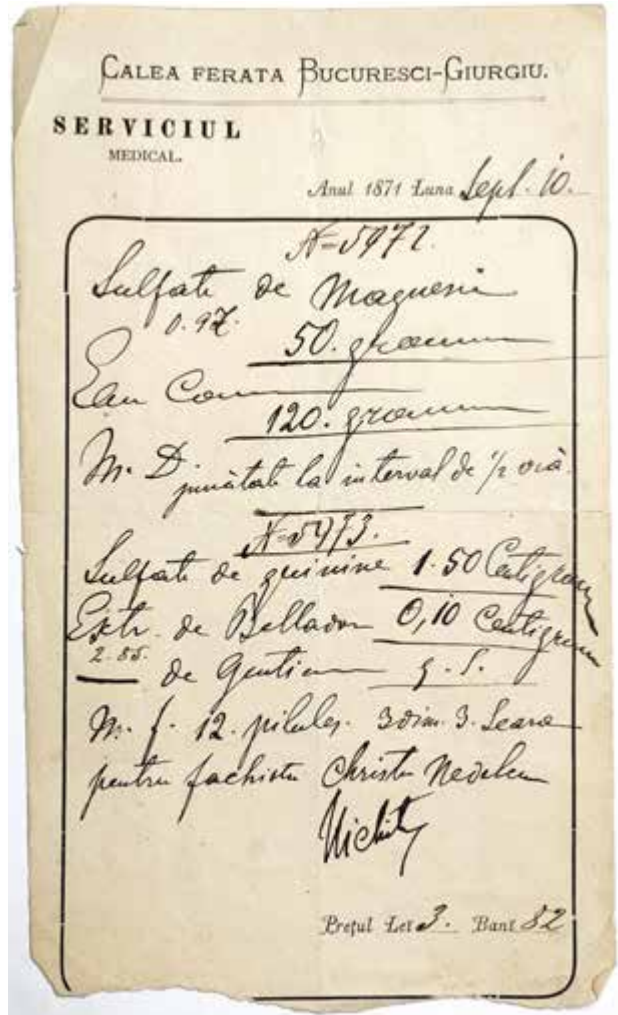 CALEA FERATA BUCURESCI-GIURGIU.
SERVICIUL
MEDICAL.
Anul 1871 Luna Sept. 10.
N=5972.
Sulfate de Magnesi
0.97.
50. gramm
Eau Com
120. gramm
M. D jumătate la interval de 1/2 oră.
N=5973.
Sulfate de quinine 1.50 Centigram
Extr. de Belladon 0,10 Centigram
2.85.
de Gentian q.s.
M. f. 12. pilules. 3 dim. 3. Seara
pentru fachistu Christu Nedelcu
Prețul Leĭ 3. Banĭ 82